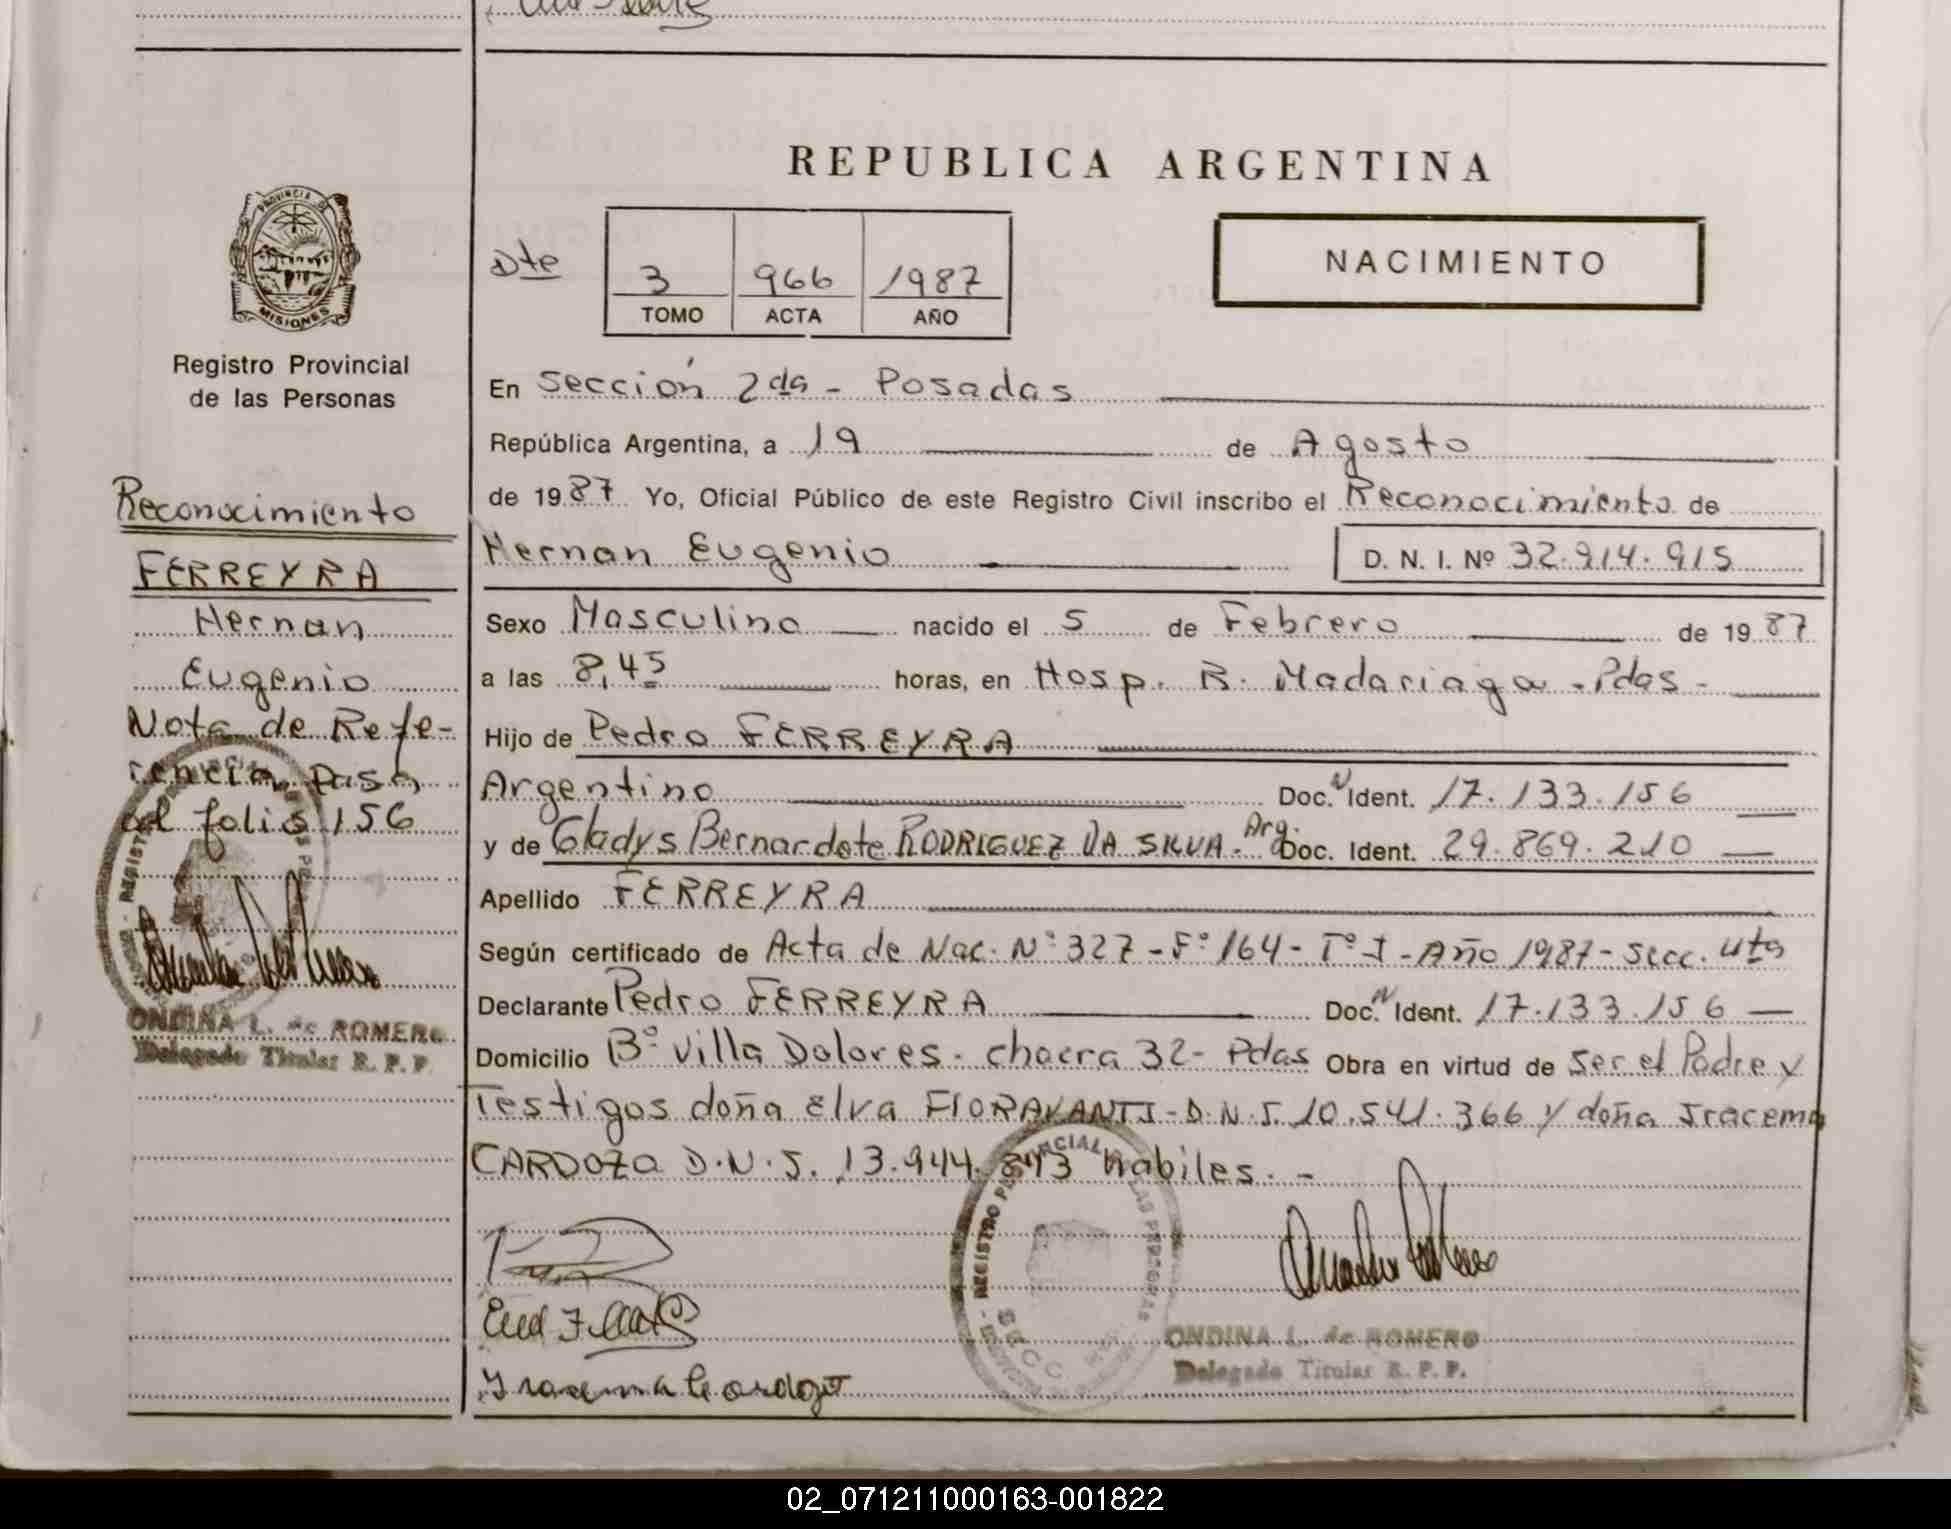 REPUBLICA ARGENTINA
PROVINCIA DE
MISIONES
Registro Provincial
de las Personas
Dte
3 966 1987
TOMO ACTA AÑO
NACIMIENTO
En Sección 2da - Posadas
República Argentina, a 19 de Agosto
de 1987 Yo, Oficial Público de este Registro Civil inscribo el Reconocimiento de
Hernan Eugenio D. N. I. Nº 32.914.915
Sexo Masculino nacido el 5 de Febrero de 1987
a las 8,45 horas, en Hosp. R. Madariaga - Pdas -
Hijo de Pedro FERREYRA
Argentino Doc. N Ident. 17.133.156
y de Gladys Bernardete RODRIGUEZ DA SILVA - Arg. Doc. Ident. 29.869.210
Apellido FERREYRA
Según certificado de Acta de Nac. Nº 327 - Fº 164 - Tº I - Año 1987 - Secc. 4ta
Declarante Pedro FERREYRA Doc. N Ident. 17.133.156
Domicilio Bº Villa Dolores - chacra 32 - Pdas Obra en virtud de Ser el Padre y
Testigos doña Elva FIORAVANTI - D.N.I. 10.541.366 y doña Iracema
CARDOZO D.N.I. 13.944.843 habiles. -
Iracema Cardozo
ONDINA L. de ROMERO
Delegado Titular R. P. P.
Reconocimiento
FERREYRA
Hernan
Eugenio
Nota de Refe-
rencia Pasa
al folio 156
ONDINA L. de ROMERO
Delegado Titular R. P. P.
02_071211000163-001822